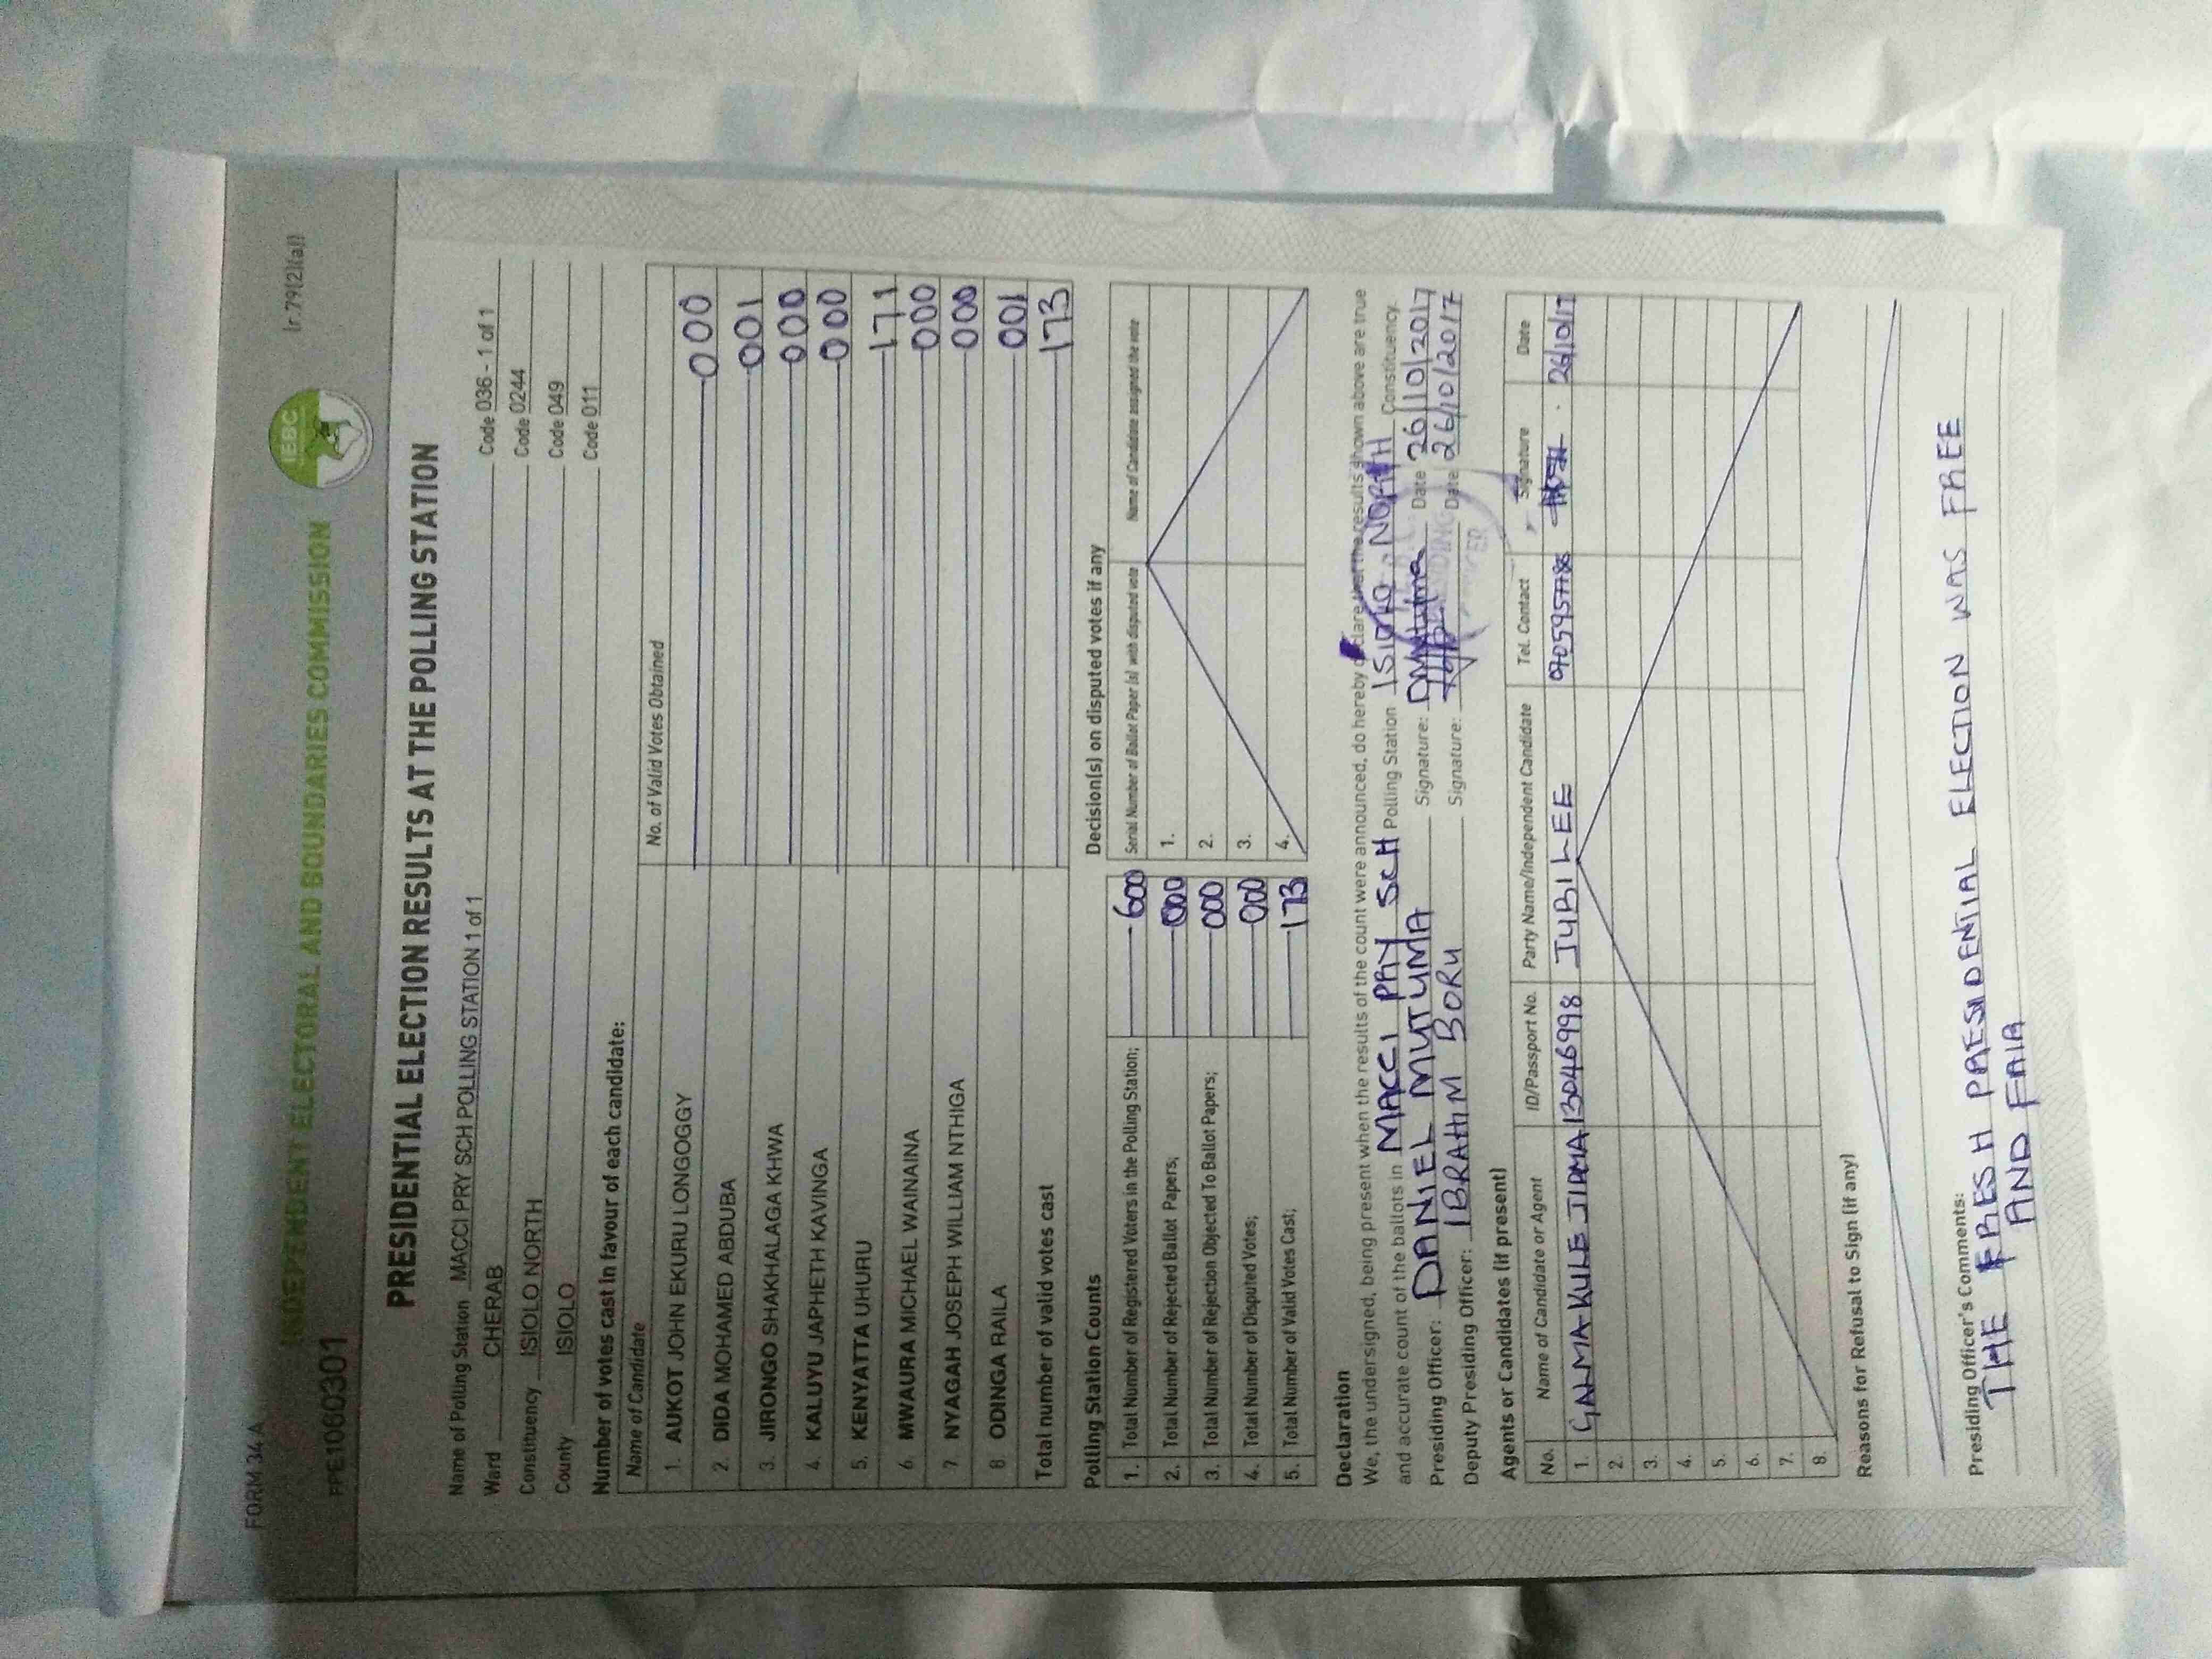 FORM 34 A
(r.79(2)(a))
INDEPENDENT ELECTORAL AND BOUNDARIES COMMISSION
IEBC
PPE1060301
PRESIDENTIAL ELECTION RESULTS AT THE POLLING STATION
Name of Polling Station MACCI PRY SCH POLLING STATION 1 of 1 Code 036 - 1 of 1
Ward CHERAB Code 0244
Constituency ISIOLO NORTH Code 049
County ISIOLO Code 011
Number of votes cast in favour of each candidate:
Name of Candidate No. of Valid Votes Obtained
1. AUKOT JOHN EKURU LONGOGGY 000
2. DIDA MOHAMED ABDUBA 001
3. JIRONGO SHAKHALAGA KHWA 000
4. KALUYU JAPHETH KAVINGA 000
5. KENYATTA UHURU 171
6. MWAURA MICHAEL WAINAINA 000
7. NYAGAH JOSEPH WILLIAM NTHIGA 000
8. ODINGA RAILA 001
Total number of valid votes cast 173
Polling Station Counts
1. Total Number of Registered Voters in the Polling Station; 600
2. Total Number of Rejected Ballot Papers; 000
3. Total Number of Rejection Objected To Ballot Papers; 000
4. Total Number of Disputed Votes; 000
5. Total Number of Valid Votes Cast; 173
Decision(s) on disputed votes if any
Serial Number of Ballot Paper (s) with disputed vote Name of Candidate assigned the vote
1.
2.
3.
4.
Declaration
We, the undersigned, being present when the results of the count were announced, do hereby declare that the results shown above are true
and accurate count of the ballots in MACCI PRY SCH Polling Station ISIOLO NORTH Constituency.
Presiding Officer: DANIEL MUTUMA Signature: Date 26/10/2017
Deputy Presiding Officer: IBRAHIM BORU Signature: Date 26/10/2017
Agents or Candidates (if present)
No. Name of Candidate or Agent ID/Passport No. Party Name/Independent Candidate Tel. Contact Signature Date
1. GALMA KULE JIRMA 13046998 JUBILEE 0705957786 26/10/17
2.
3.
4.
5.
6.
7.
8.
Reasons for Refusal to Sign (if any)
Presiding Officer's Comments:
THE FRESH PRESIDENTIAL ELECTION WAS FREE
AND FAIR